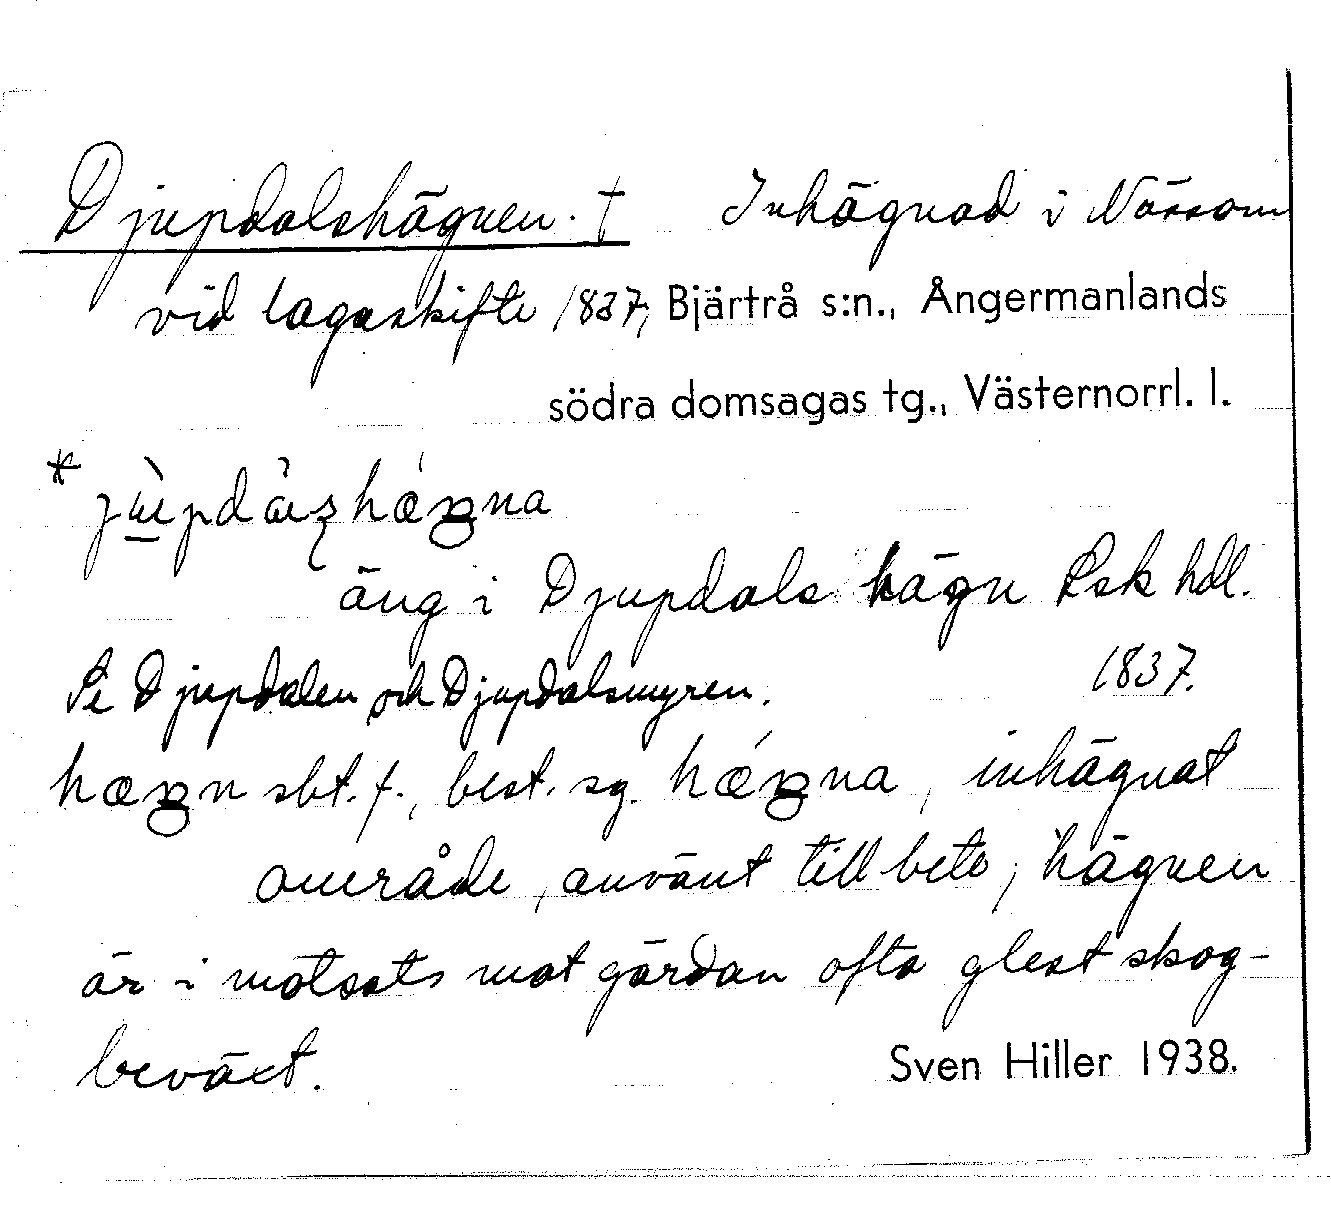 Djupdalshägnen. † Inhägnad i Nässom
vid lagaskifte 1837, Bjärtrå s:n., Ångermanlands
södra domsagas tg., Västernorrl. l.
äng i Djupdals hägn Lsk hdl.
1837.
Se Djupdalen och Djupdalsmyren.
hæŋn sbt. f., best. sg. hǽŋna, inhägnat
område, använt till bete; hägnen
är i motsats mot gärdan ofta glest skog-
beväxt.
Sven Hiller 1938.